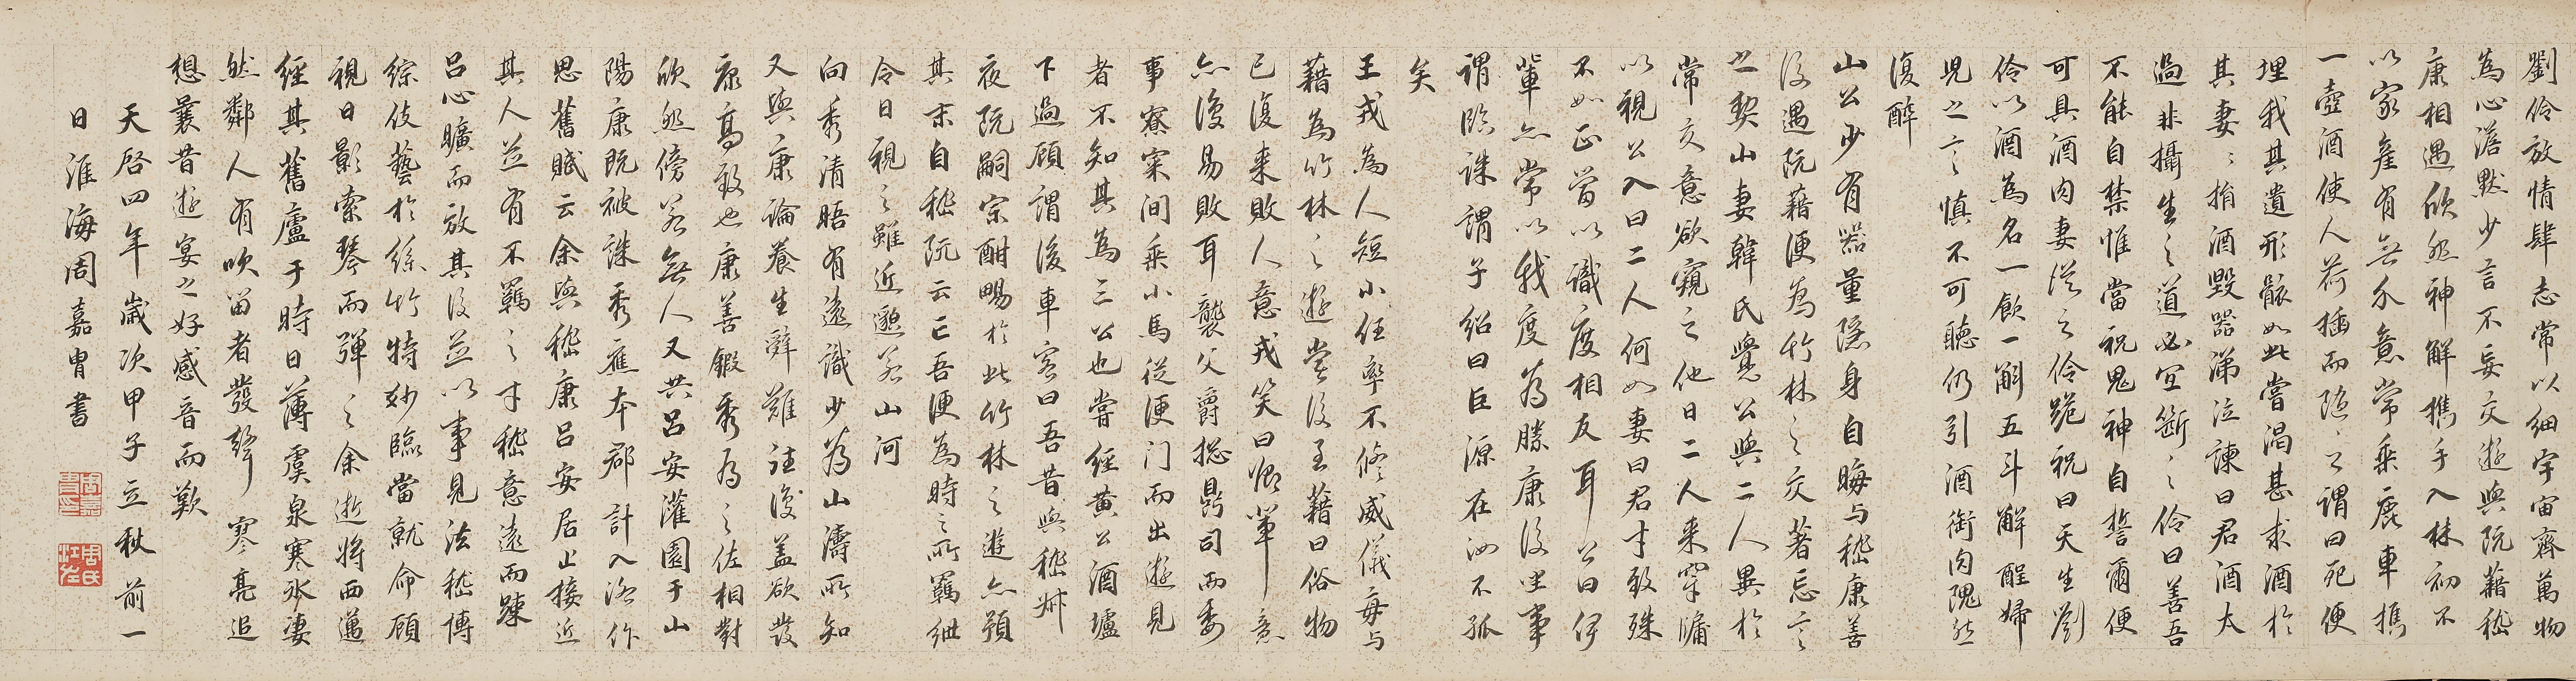 劉伶放情肆志常以細宇宙齊萬物
為心澹默少言不妄交遊與阮藉嵇
康相遇欣然神解攜手入林初不
以家產有無介意常乘鹿車攜
一壺酒使人荷插而隨之謂曰死便
埋我其遺形骸如此嘗渴甚求酒於
其妻〻捐酒毀器涕泣諫曰君酒太
過非攝生之道必宜斷之伶曰善吾
不能自禁惟當祝鬼神自誓爾便
可具酒肉妻從之伶跪祝曰天生劉
伶以酒為名一飲一斛五斗解酲婦
兒之言慎不可聽仍引酒銜肉隗然
復醉
山公少有器量隱身自晦与嵇康善
後遇阮藉便為竹林之交著忘言
之契山妻韓氏覺公與二人異於
常交意欲窺之他日二人来穿牖
以視公入曰二人何如妻曰君才致殊
不如正當以識度相友耳公曰伊
輩亦常以我度為勝康後坐事
謂臨誅謂子紹曰巨源在汝不孤
矣
王戎為人短小任率不脩威儀每与
藉為竹林之遊嘗後至藉曰俗物
已復来敗人意戎笑曰卿輩意
亦復易敗耳襲父爵揔鼎司而委
事寮寀间乗小馬從便门而出遊見
者不知其為三公也嘗經黄公酒壚
下過顧謂後車客曰吾昔與嵇叔
夜阮嗣宗酣暢於此竹林之遊亦預
其末自嵇阮云亡吾便為時之所羈紲
今日視之雖近邈若山河
向秀清晤有遠識少為山濤所知
又與康論養生辭難往復盖欲發
康高致也康善鍛秀為之佐相對
欣然傍若無人又共吕安灌園于山
陽康既被誅秀應本郡計入洛作
思舊賦云余與嵇康吕安居止接近
其人並有不羈之才嵇意遠而疎
吕心曠而放其後並以事見法嵇博
綜伎藝於絲竹特妙臨當就命顧
視日影索琴而弹之余逝將西邁
經其舊廬于時日薄虞泉寒冰淒
然鄰人有吹笛者發聲寥亮追
想曩昔遊宴之好感音而歎
天啓四年歲次甲子立秋前一
日淮海周嘉胄書
周嘉胄印
周氏江左